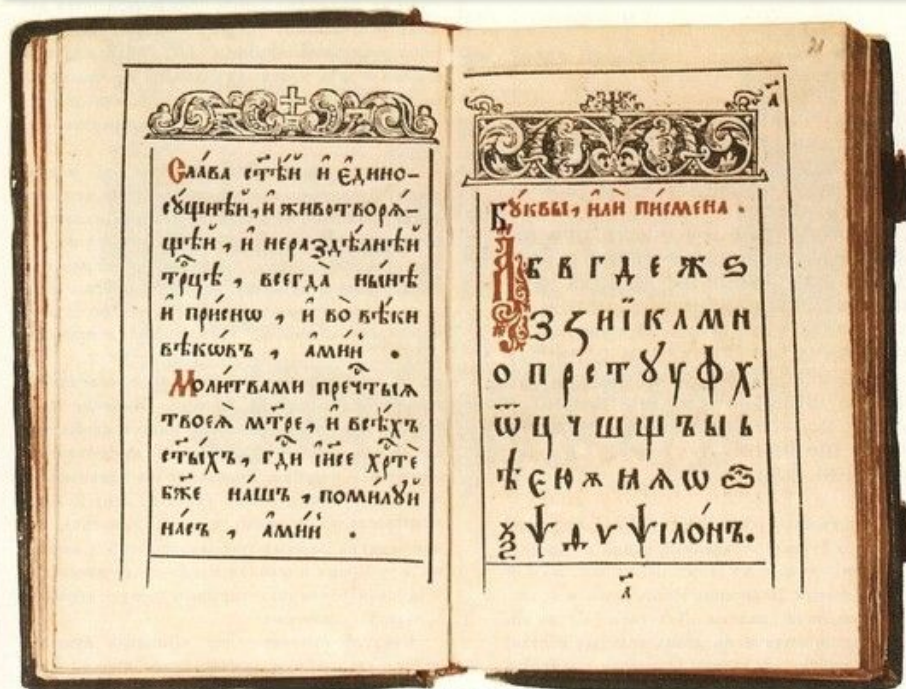 Сла́ва ст҃ѣ́й и҆ є҆дино-
сꙋ́щнѣй, и҆ животворѧ́-
щѣй, и҆ нераздѣ́лнѣй
трⷪ҇цѣ, всегда̀ ны́нѣ
и҆ при́снѡ, и҆ во̀ вѣ́ки
вѣкѡ́въ, а҆ми́нь.
Моли́твами пречⷭ҇тыѧ
твоеѧ̀ мт҃ре, и҆ всѣ́хъ
ст҃ы́хъ, гдⷭ҇и і҆и҃се хрⷭ҇тѐ
бж҃е на́шъ, поми́лꙋй
на́съ, а҆ми́нь.
21
а҃і
Бꙋ́квы, и҆лѝ пи́смена.
А б в г д е ж ѕ
з ꙁ и ї к л м н
о п р с т ꙋ у ф х
ѿ ц ч ш щ ъ ы ь
ѣ є ю ѫ ꙗ ѧ ѡ ѽ
ѯ ѱ ѳ ѵ ѱїло́нъ.
а҃і